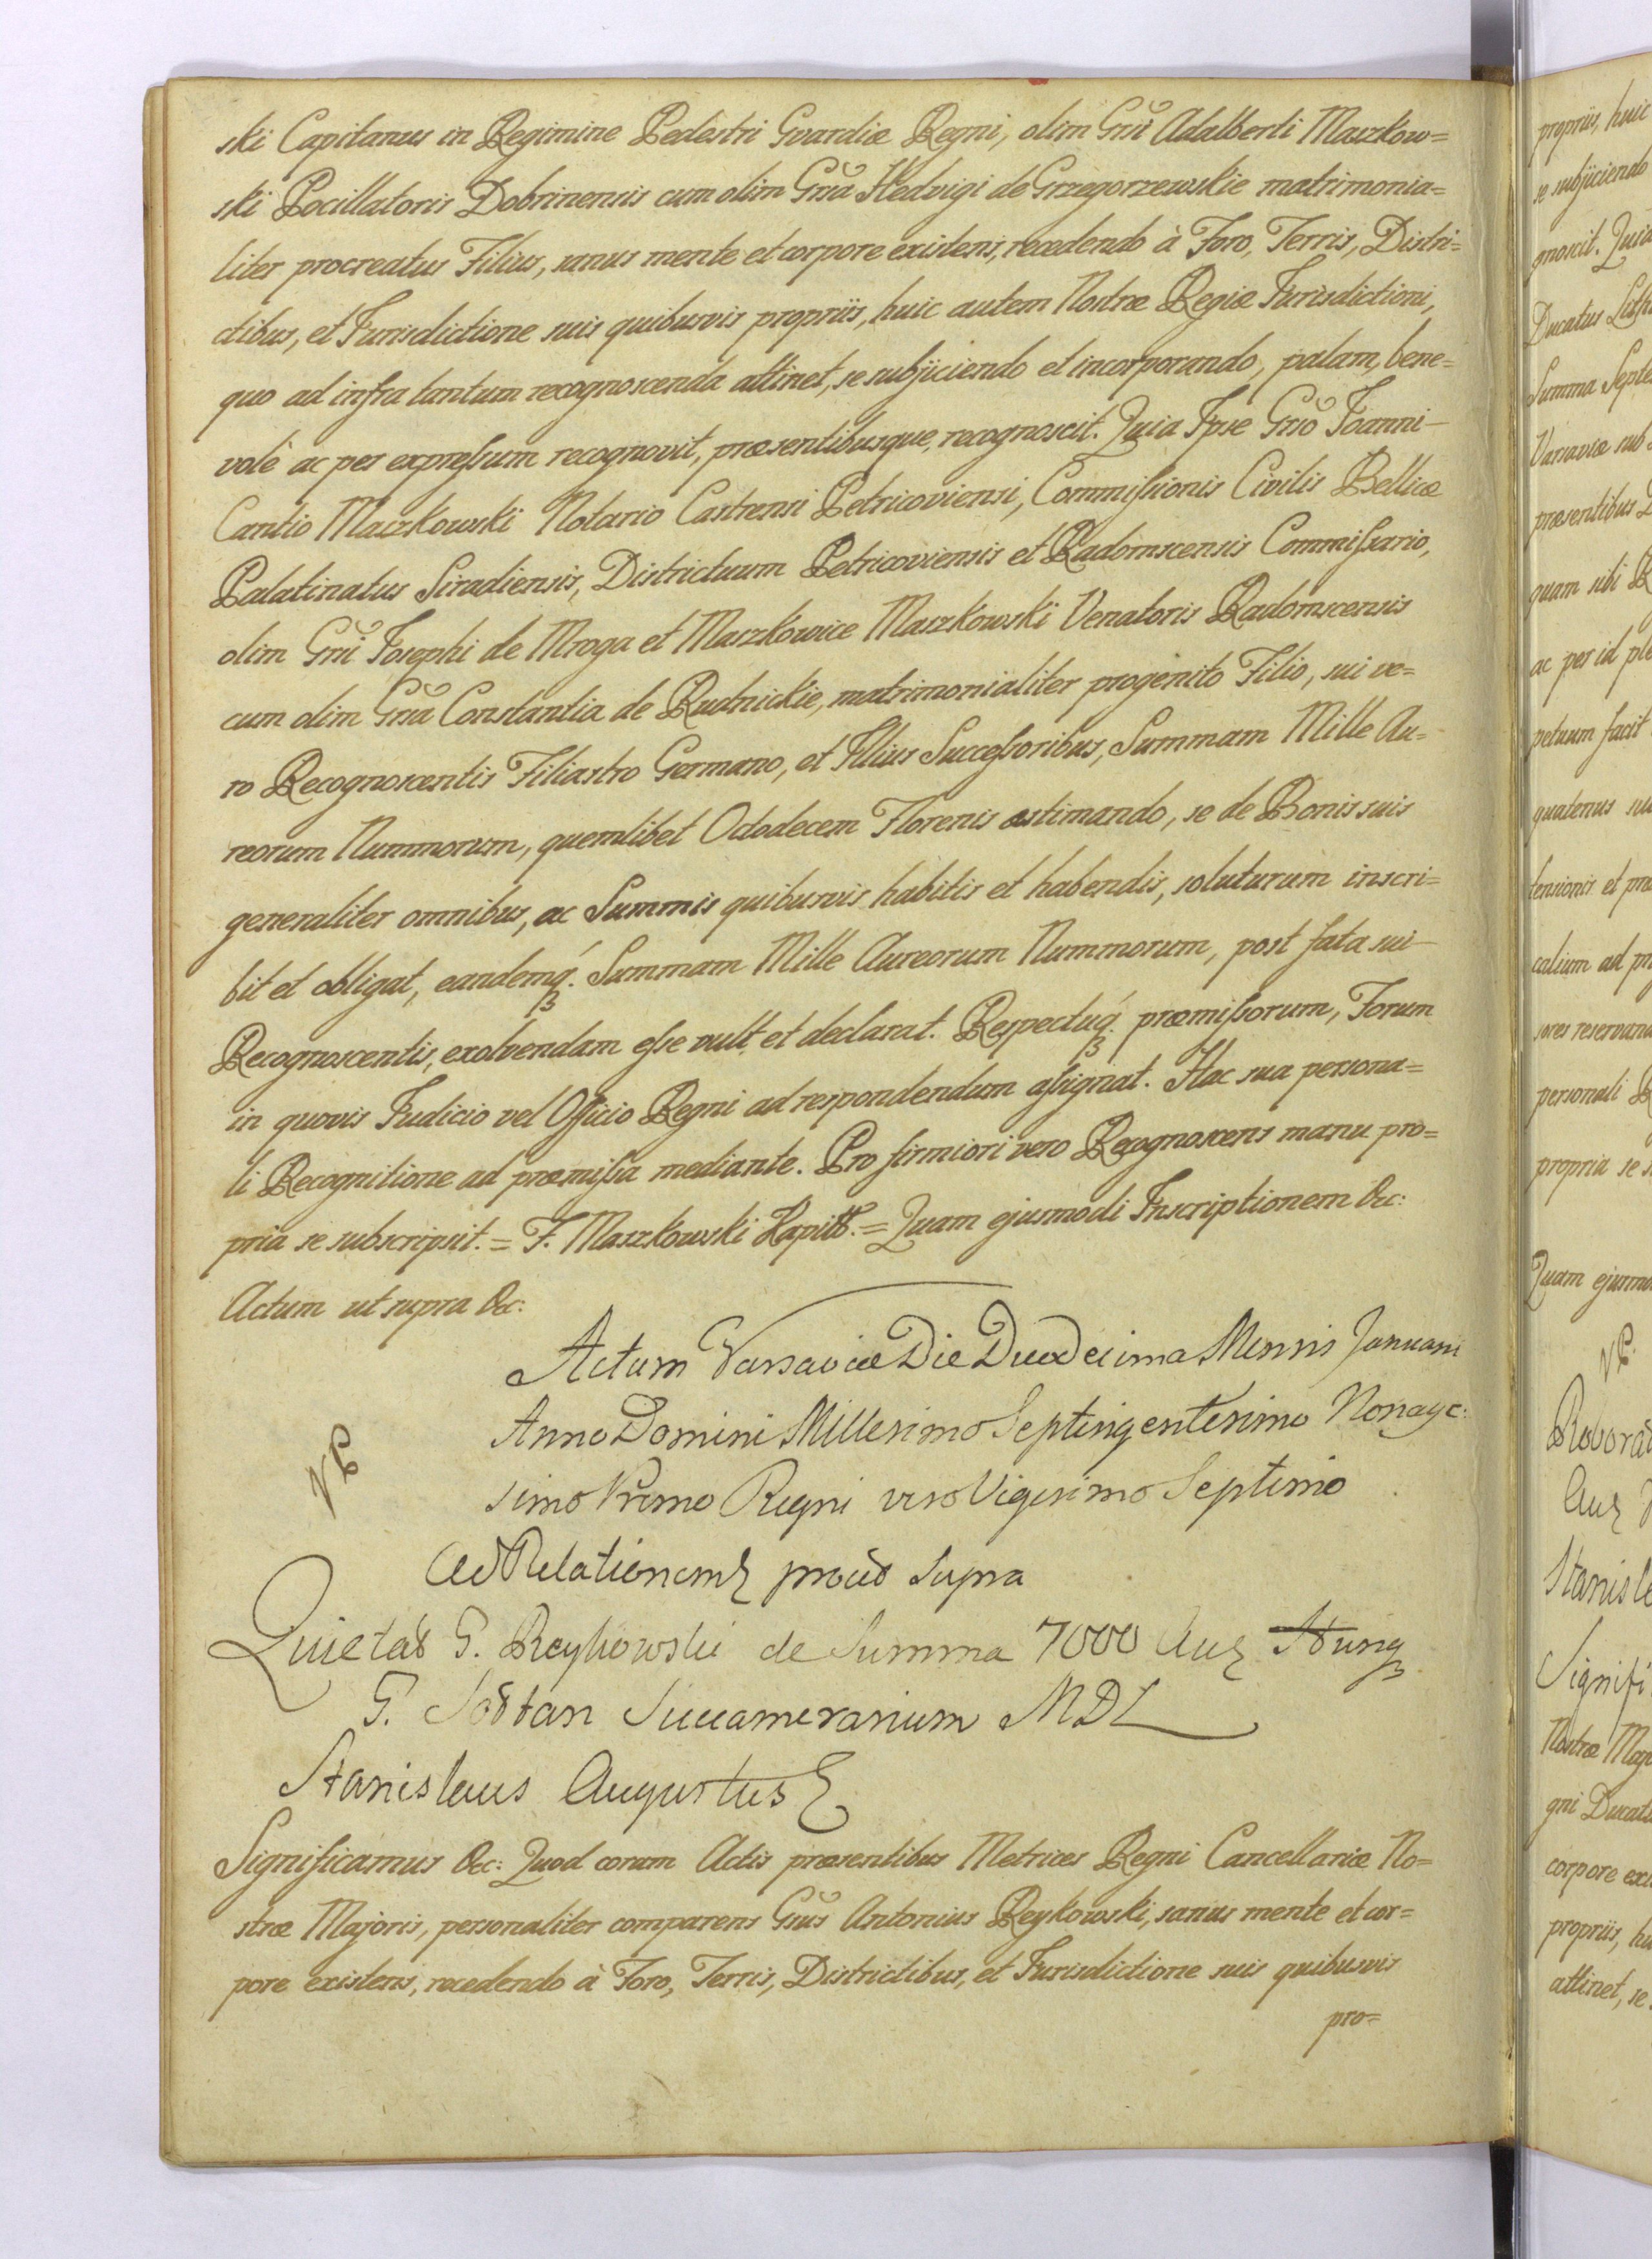 ski Capitaneus in Regimine Pedestri Gvardiæ Regni, olim Grsi Adalberti Maszkow=
ski Pocillatoris Dobrinensis cum olim Grsa Hedvigi de Grzegorzewskie matrimonia=
liter procreatus Filius, sanus mente et corpore existens, recedendo à Foro, Terris, Distri=
ctibus, et Jurisdictione suis quibusvis propriis, huic autem Nostræ Regiæ Jurisdictioni,
quo ad infra tantum recognoscenda attinet, se subjiciendo et incorporando, palam, bene=
volè ac per expressum recognovit, præsentibusque, recognoscit. Quia Ipse Grso Joanni
Cantio Maszkowski Notario Castrensi Petricoviensi, Commissionis Civilis Bellicæ
Palatinatus Siradiensis, Districtuum Petricoviensis et Radomscensis Commissario,
olim Grsi Josephi de Mroga et Maszkowice Maszkowski Venatoris Radomscensis
cum olim Grsa Constantia de Rudnickie, matrimonialiter progenito Filio, sui ve=
ro Recognoscentis Filiastro Germano, et Illius Successoribus, Summam Mille Au=
reorum Nummorum, quemlibet Octodecem Florenis æstimando, se de Bonis suis
generaliter omnibus, ac Summis quibusvis habitis et habendis, soluturum inscri=
bit et obligat, eandemq́. Summam Mille Aureorum Nummorum, post fata sui
Recognoscentis, exolvendam esse vult et declarat. Respectuq́. præmissorum, Forum
in quovis Judicio vel Officio Regni ad respondendum assignat. Hac sua persona=
li Recognitione ad præmissa mediante. Pro firmiori vero Recognoscens manu pro=
pria se subscripsit. = F. Maszkowski Kapitt. = Quam ejusmodi Inscriptionem &c:
Actum ut supra &c:
Actum Varsaviæ Die Duodecima Mensis Januarii
Anno Domini Millesimo Septingentesimo Nonage:
simo Primo Regni vero Vigesimo Septimo
Ad Relationem prout Supra
Quietat G. Reykowski de Summa 7000 Aur Hung
G. Sołtan Succamerarium MDL
Stanislaus Augustus
Significamus &c: Quod coram Actis præsentibus Metrices Regni Cancellariæ No=
stræ Majoris, personaliter comparens Grsus Antonius Reykowski, sanus mente et cor=
pore existens, recedendo à Foro, Terris, Districtibus, et Jurisdictione suis quibusvis
pro=